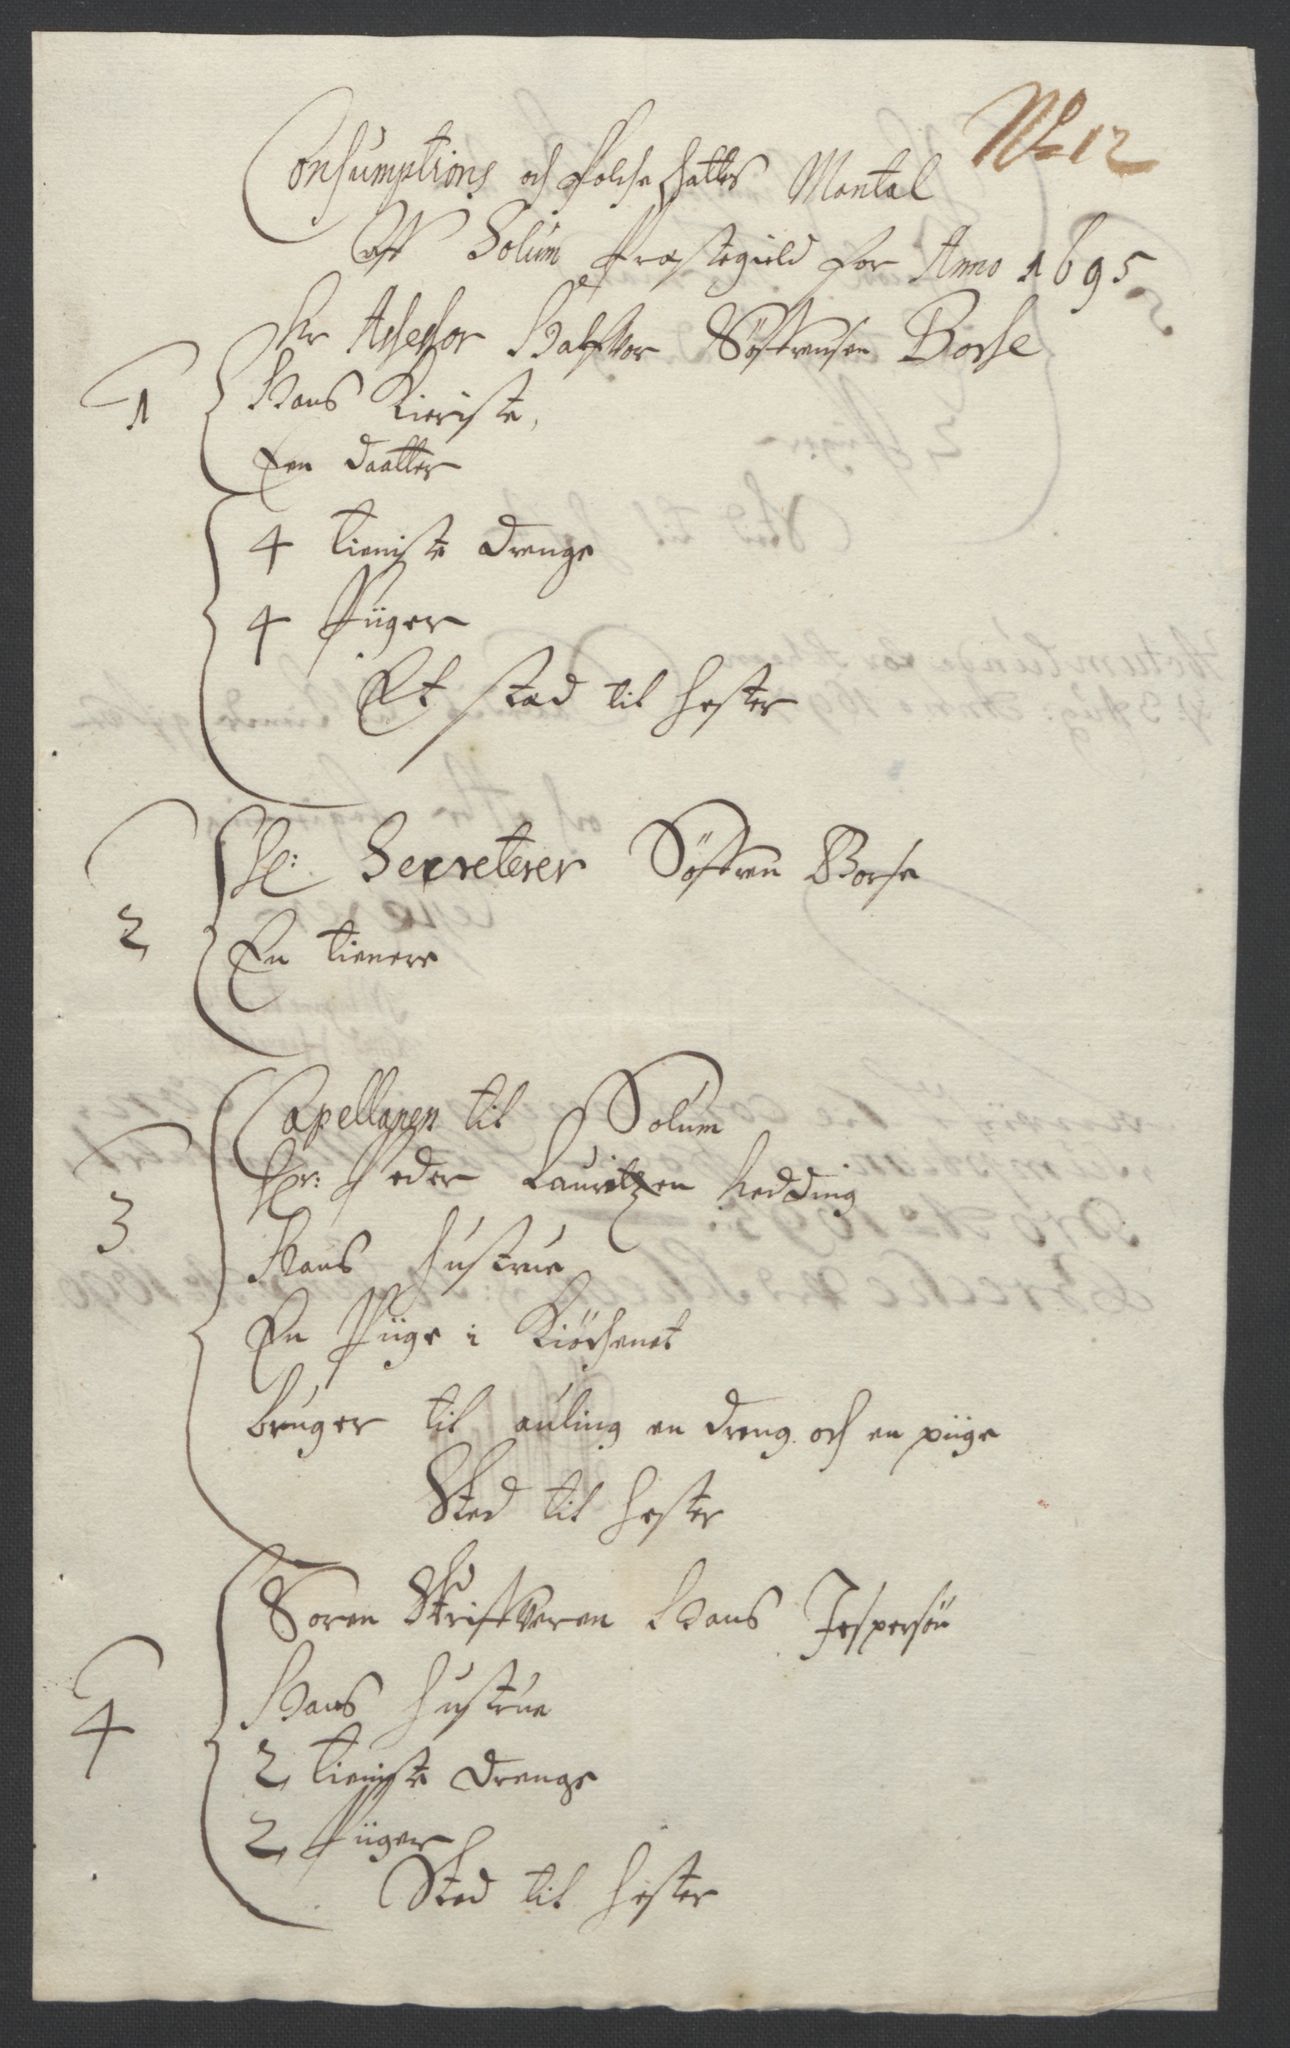 No 12
Consumptions och Folcke skattes Mantal
Aff Solum Præstegield for Anno 1695
1 Hr Assessor Halffvor Søffrensen Borse
Hans Kieriste,
Een daatter
4 tieniste drenge
4 Piiger
Et stad til hester
2 Hr: Secreterer Søffren Borse
En tienere
3 Capellanen til Solum
Hr: Peder Lauritzen Hedding
Hans hustrue
En Piige i Kiøckenet
bruger til auling en dreng och en piige
Stad til hester
4 Soren Skriffveren Hans Jespersøn
Hans hustrue
2 tieniste drenge
2 Piiger
Stad til hester